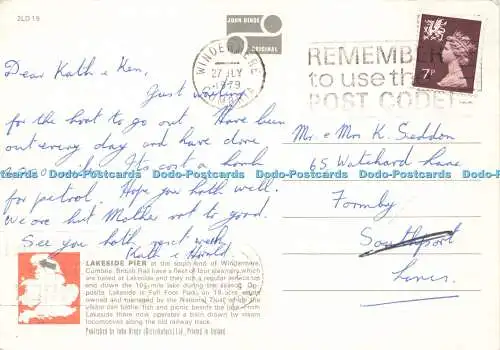 2LD 19
JOHN HINDE
ORIGINAL
WINDERMERE
27 JLY
1979
CUMBRIA
REMEMBER
to use the
POST CODE
7P
Dear Kath & Ken,
Just waiting
for the boat to go out. Have been
out every day and have done
Its cost a bomb
for petrol. Hope your both well.
We are but Mother not to good.
See you both next week
Kath & Harold
Mr. & Mrs K. Seddon
65 Watchard Lane
Formby
Southport
Lancs.
Dodo-Postcards Dodo-Postcards Dodo-Postcards Dodo-Postcards Dodo-Postcards
LAKESIDE PIER at the south end of Windermere,
Cumbria. British Rail have a fleet of four steamers which
are based at Lakeside and they run a regular service to
end down the 10½ mile lake during the season. Op-
posite Lakeside is Fell Foot Park, an 18 acre estate
owned and managed by the National Trust, where the
visitor can bathe, fish and picnic beside the lake. From
Lakeside there now operates a train drawn by steam
locomotives along the old railway track.
Published by John Hinde (Distributors) Ltd., Printed in Ireland